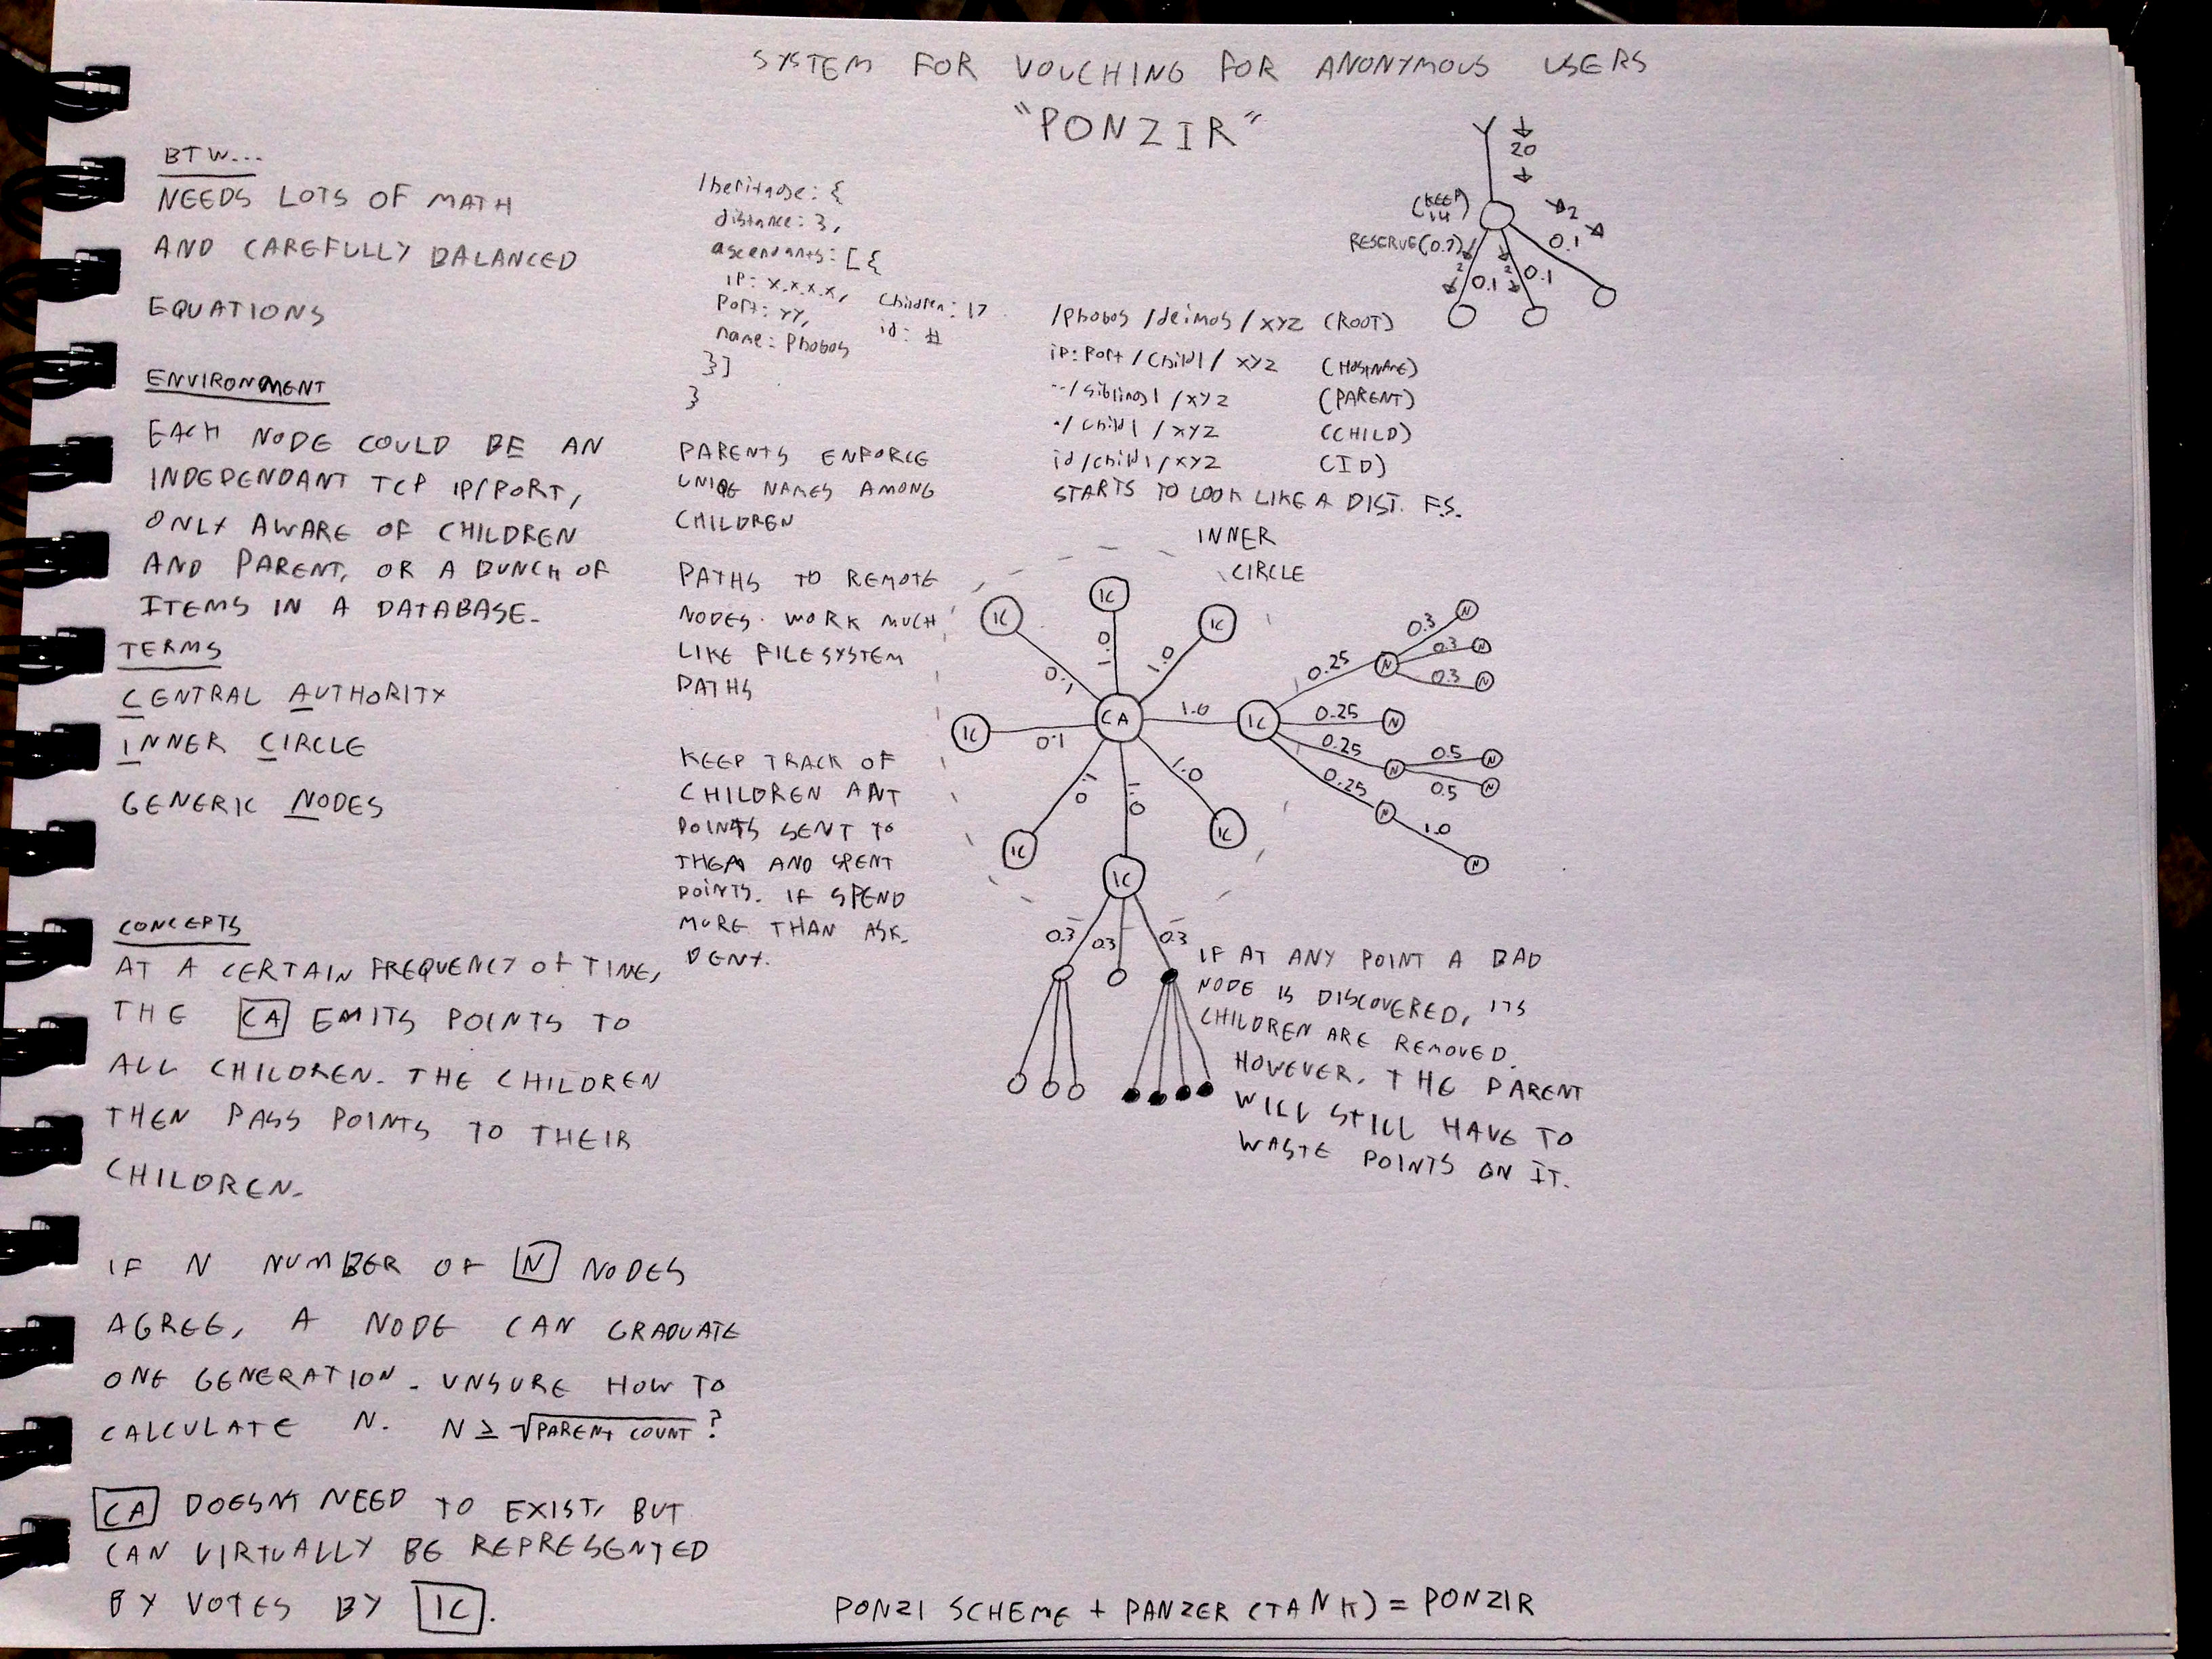 SYSTEM FOR VOUCHING FOR ANONYMOUS USERS
"PONZIR"
BTW...
NEEDS LOTS OF MATH
AND CAREFULLY BALANCED
EQUATIONS
ENVIRONMENT
EACH NODE COULD BE AN
INDEPENDANT TCP IP/PORT,
ONLY AWARE OF CHILDREN
AND PARENT, OR A BUNCH OF
ITEMS IN A DATABASE.
TERMS
CENTRAL AUTHORITY
INNER CIRCLE
GENERIC NODES
CONCEPTS
AT A CERTAIN FREQUENCY OF TIME,
THE CA EMITS POINTS TO
ALL CHILDREN. THE CHILDREN
THEN PASS POINTS TO THEIR
CHILDREN.
IF N NUMBER OF N NODES
AGREE, A NODE CAN GRADUATE
ONE GENERATION. UNSURE HOW TO
CALCULATE N. N ≥ √PARENT COUNT ?
CA DOESNT NEED TO EXIST, BUT
CAN VIRTUALLY BE REPRESENTED
BY VOTES BY IC.
distance: 3,
ascendants: [{
IP: x.x.x.x, children: 17
Port: YY, id: #
name: Phobos
}]
}
PARENTS ENFORCE
UNIQE NAMES AMONG
CHILDREN
PATHS TO REMOTE
NODES WORK MUCH
LIKE FILESYSTEM
PATHS
KEEP TRACK OF
CHILDREN ANT
POINTS SENT TO
THEM AND SPENT
POINTS. IF SPEND
MORE THAN ASK.
DENY.
20
(KEEP
14)
2
RESERVE(0.7)
0.1
2
0.1
2
0.1
/phobos/deimos/xYZ (ROOT)
iP:Port/Child1/xYZ (HOSTNAME)
../sibling1/xYZ (PARENT)
./child1/xYZ (CHILD)
id/child1/xYZ (ID)
STARTS TO LOOK LIKE A DIST. F.S.
INNER
CIRCLE
IC
IC
IC
0.1
1.0
1.0
IC
0.1
CA
1.0
IC
0.1
1.0
1.0
IC
IC
IC
0.25
N
0.3
N
0.3
N
0.3
N
0.25
N
0.25
N
0.5
N
0.5
N
0.25
N
1.0
N
0.3
0.3
0.3
IF AT ANY POINT A BAD
NODE IS DISCOVERED, ITS
CHILDREN ARE REMOVED.
HOWEVER, THE PARENT
WILL STILL HAVE TO
WASTE POINTS ON IT.
PONZI SCHEME + PANZER (TANK) = PONZIR